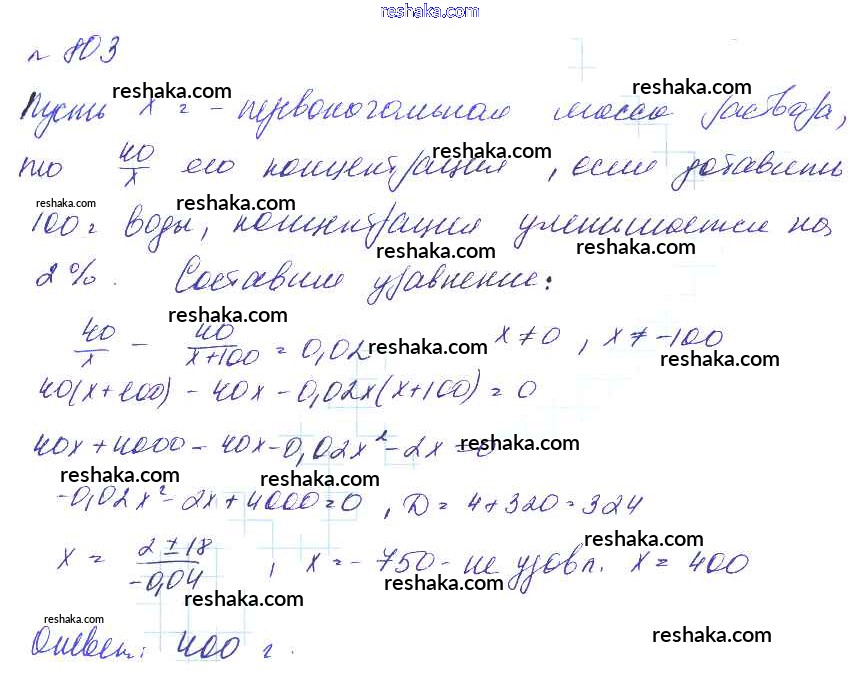 reshaka.com
№ 803
Пусть x г - первоначальная масса раствора,
reshaka.com reshaka.com
то 40/x его концентрация, если добавить
reshaka.com
reshaka.com reshaka.com
100 г воды, концентрация уменьшается на
reshaka.com reshaka.com
2%. Составим уравнение:
reshaka.com
40/x - 40/(x+100) = 0,02 x ≠ 0, x ≠ -100
reshaka.com reshaka.com
40(x+100) - 40x - 0,02x(x+100) = 0
40x + 4000 - 40x - 0,02x² - 2x = 0
reshaka.com
reshaka.com reshaka.com
-0,02x² - 2x + 4000 = 0, D = 4 + 320 = 324
reshaka.com
x = (2 ± 18)/(-0,04), x = - 750 - не удовл. x = 400
reshaka.com reshaka.com
reshaka.com
Ответ: 400 г.
reshaka.com